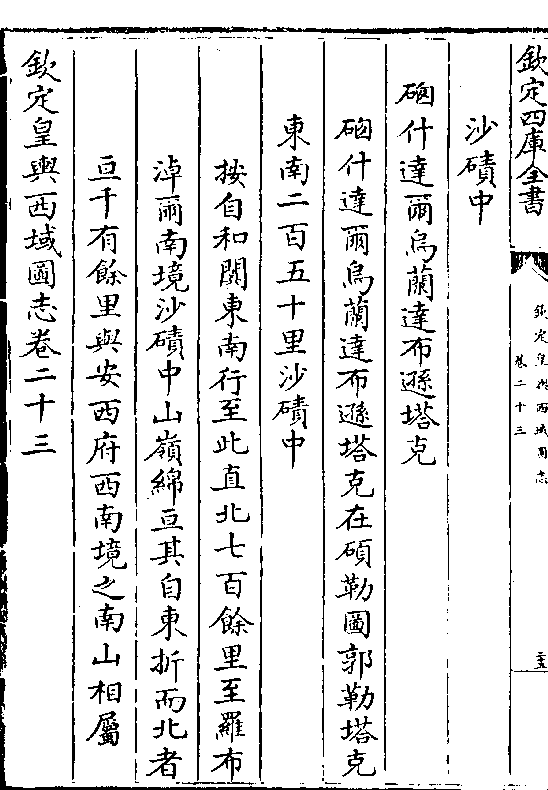 欽定四庫全書
欽定皇輿西域圖志
卷二十三
二十五
沙磧中
硇什達爾烏蘭達布遜塔克
硇什達爾烏蘭達布遜塔克在碩勒圖郭勒塔克
東南二百五十里沙磧中
按自和闐東南行至此直北七百餘里至羅布
淖爾南境沙磧中山嶺綿亘其自東折而北者
亘千有餘里與安西府西南境之南山相屬
欽定皇輿西域圖志卷二十三